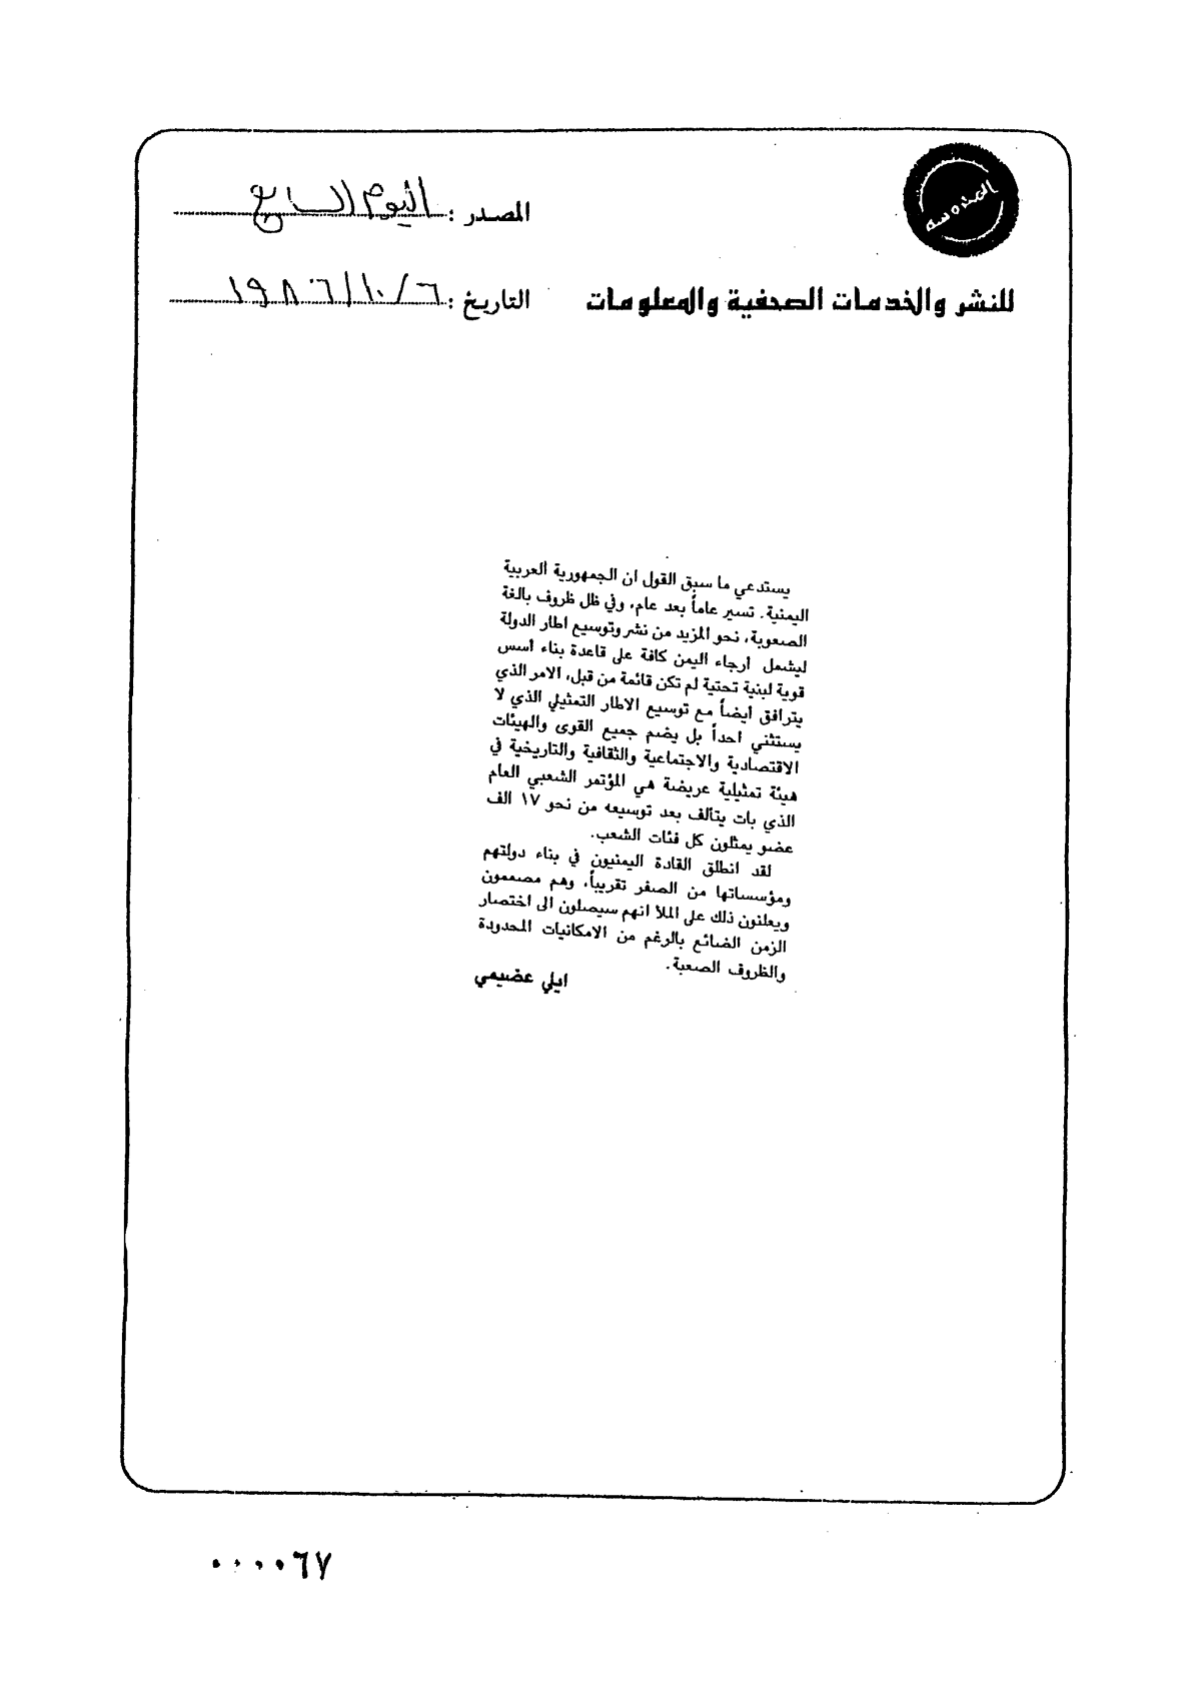 المصدر : اليوم السابع
للنشر والخدمات الصحفية والمعلومات
التاريخ : ٦/١٠/١٩٨٦
يستدعي ما سبق القول ان الجمهورية العربية
اليمنية. تسير عاماً بعد عام، وفي ظل ظروف بالغة
الصعوبة، نحو المزيد من نشر وتوسيع اطار الدولة
ليشمل أرجاء اليمن كافة على قاعدة بناء أسس
قوية لبنية تحتية لم تكن قائمة من قبل، الامر الذي
يترافق أيضاً مع توسيع الاطار التمثيلي الذي لا
يستثني احداً بل يضم جميع القوى والهيئات
الاقتصادية والاجتماعية والثقافية والتاريخية في
هيئة تمثيلية عريضة هي المؤتمر الشعبي العام
الذي بات يتألف بعد توسيعه من نحو ١٧ الف
عضو يمثلون كل فئات الشعب.
لقد انطلق القادة اليمنيون في بناء دولتهم
ومؤسساتها من الصفر تقريباً، وهم مصممون
ويعلنون ذلك على الملأ انهم سيصلون الى اختصار
الزمن الضائع بالرغم من الامكانيات المحدودة
والظروف الصعبة.
ايلي عضيمي
٠٠٠٠٦٧